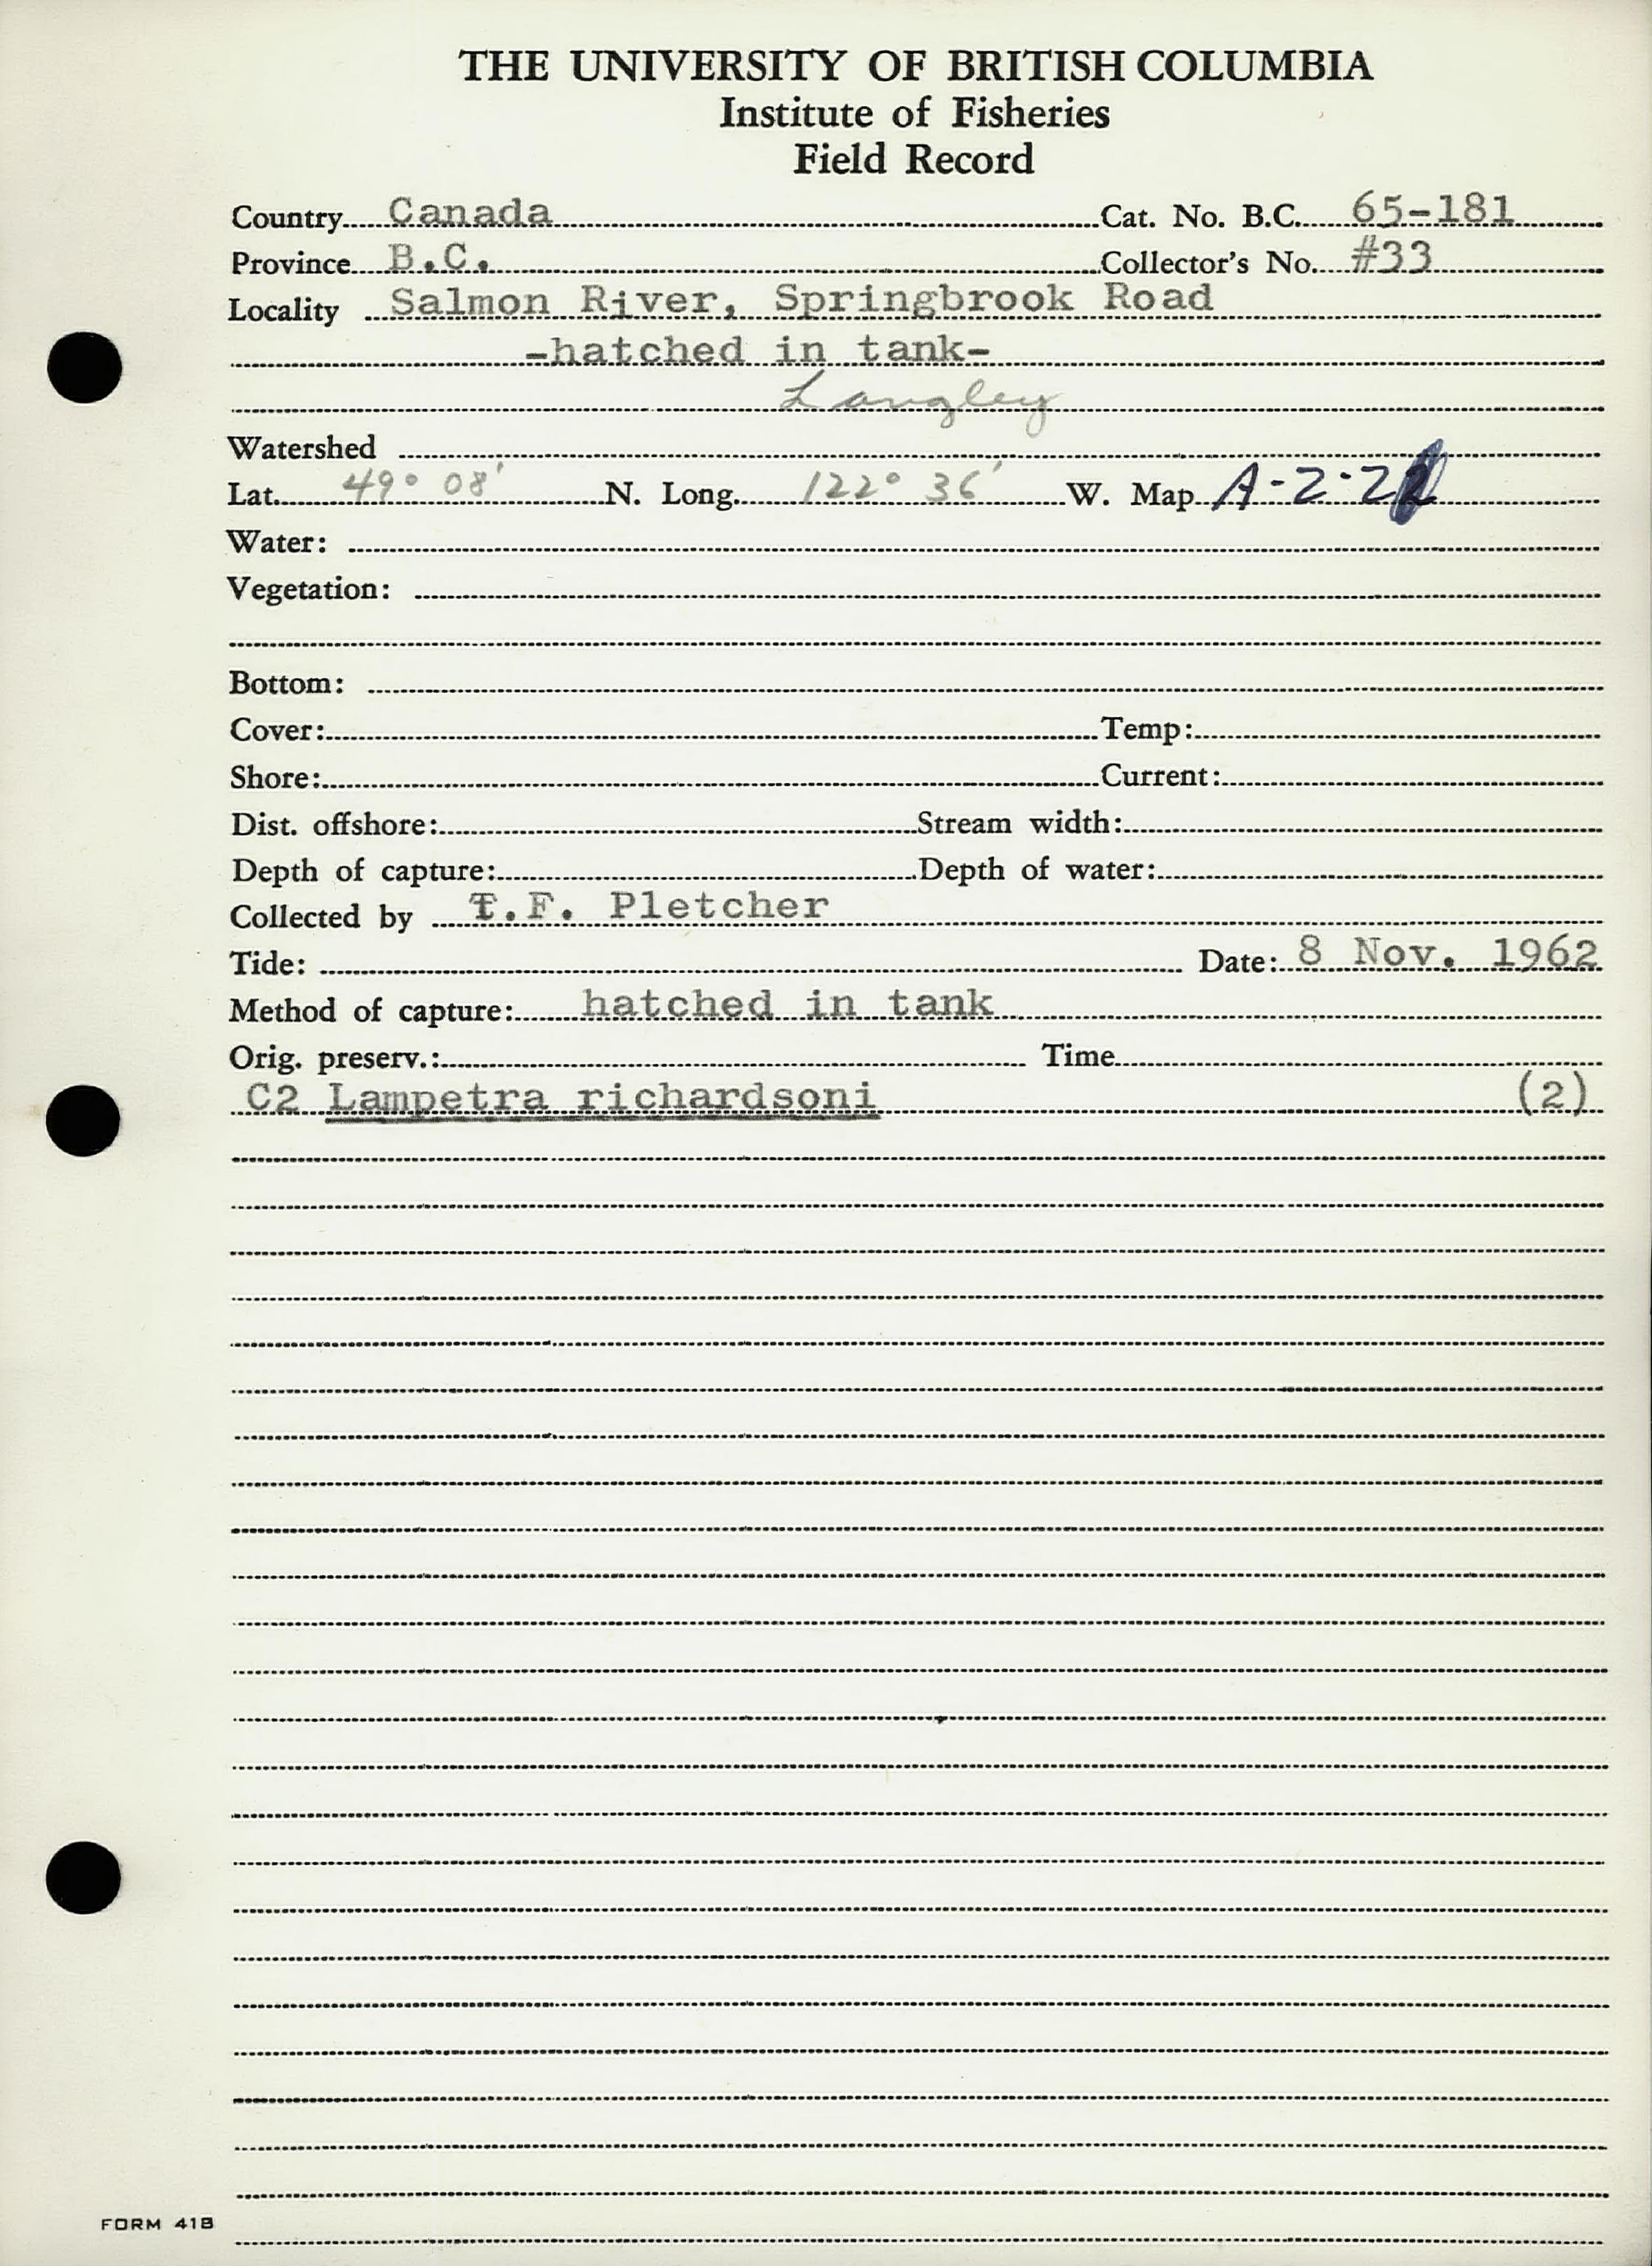 THE UNIVERSITY OF BRITISH COLUMBIA
Institute of Fisheries
Field Record
Country Canada Cat. No. B.C. 65-181
Province B.C. Collector's No. #33
Locality Salmon River, Springbrook Road
-hatched in tank-
Langley
Watershed
Lat. 49° 08' N. Long. 122° 36' W. Map A-2-2
Water:
Vegetation:
Bottom:
Cover: Temp:
Shore: Current:
Dist. offshore: Stream width:
Depth of capture: Depth of water:
Collected by T.F. Pletcher
Tide: Date: 8 Nov. 1962
Method of capture: hatched in tank
Orig. preserv.: Time
C2 Lampetra richardsoni (2)
FORM 41B